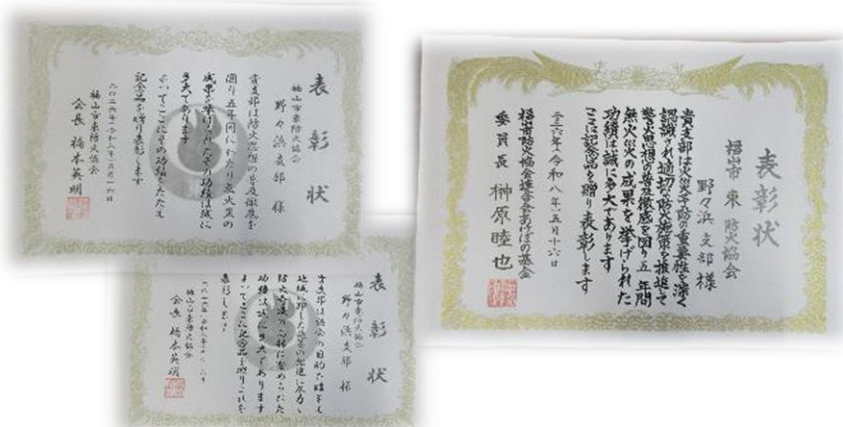 表彰状
福山市東防火協会
野々浜支部 様
貴支部は防火思想の普及徹底を
図り五年間にわたり無火災の
成果を挙げられたその功績は誠に
多大であります
よってここにその功績をたたえ
記念品を贈り表彰します
福山市東防火協会
会長 橋本英明
表彰状
福山市東防火協会
野々浜支部 様
防火
功績は誠に多大であります
よってここに記念品を贈りこれを
表彰します
福山市東防火協会
会長 橋本英明
表彰状
福山市 東 防火協会
野々浜 支部 様
貴支部は火災予防の重要性を深く
認識され適切な防火施策を推進して
防火思想の普及徹底を図り五年間
無火災の成果を挙げられた
功績は誠に多大であります
ここに記念品を贈り表彰します
二〇二六年(令和八年)五月十六日
福山市防火協会連合会あけぼの基金
委員長 榊原睦也